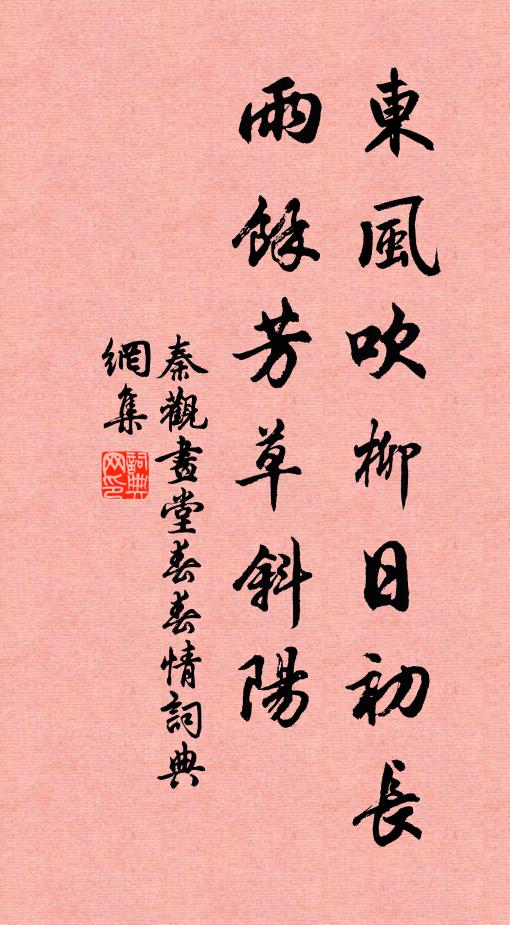 東風吹柳日初長
雨餘芳草斜陽
秦觀畫堂春春情詞典
網集
詞典
网印